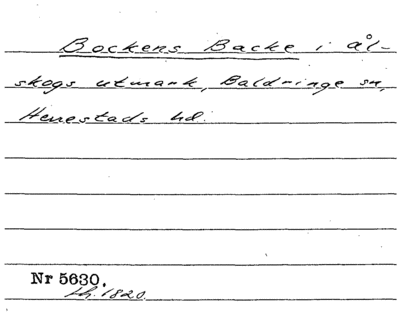 Bockens Backe i ål-
skogs utmark, Baldringe sn,
Herrestads hd.
Nr 5630.
th. 1820.